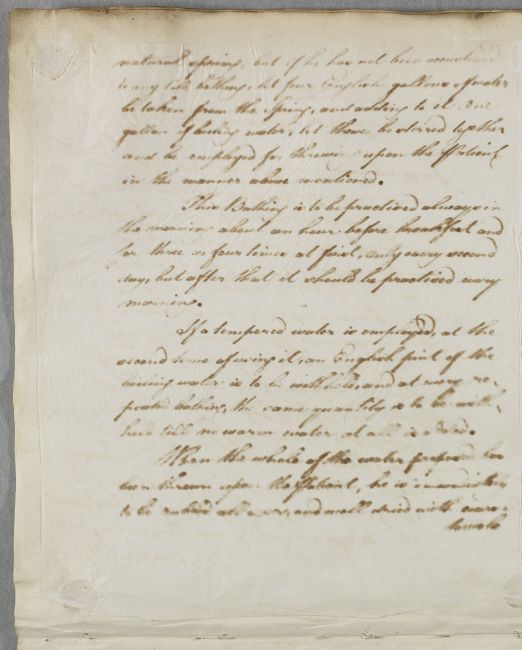 natural spring, but if he has not been accustomed
to any like bathing, let four English gallons of water
be taken from the Spring, and adding to it one
gallon of boiling water, let them be stirred together
and be employed for throwing upon the Patient
in the manner above mentioned.
This Bathing is to be practised always in
the morning about an hour before breakfast and
for three or four times at first, only every second
day, but after that it should be practised every
morning.
If a tempered water is employed, at the
second time of using it, an English pint of the
boiling water is to be withheld, and at every re-
peated bathing, the same quantity is to be with-
held till no warm water at all is added.
When the whole of the water prepared has
been thrown upon the Patient, he is immediately
to be rubbed all over, and well dried with warm
towels